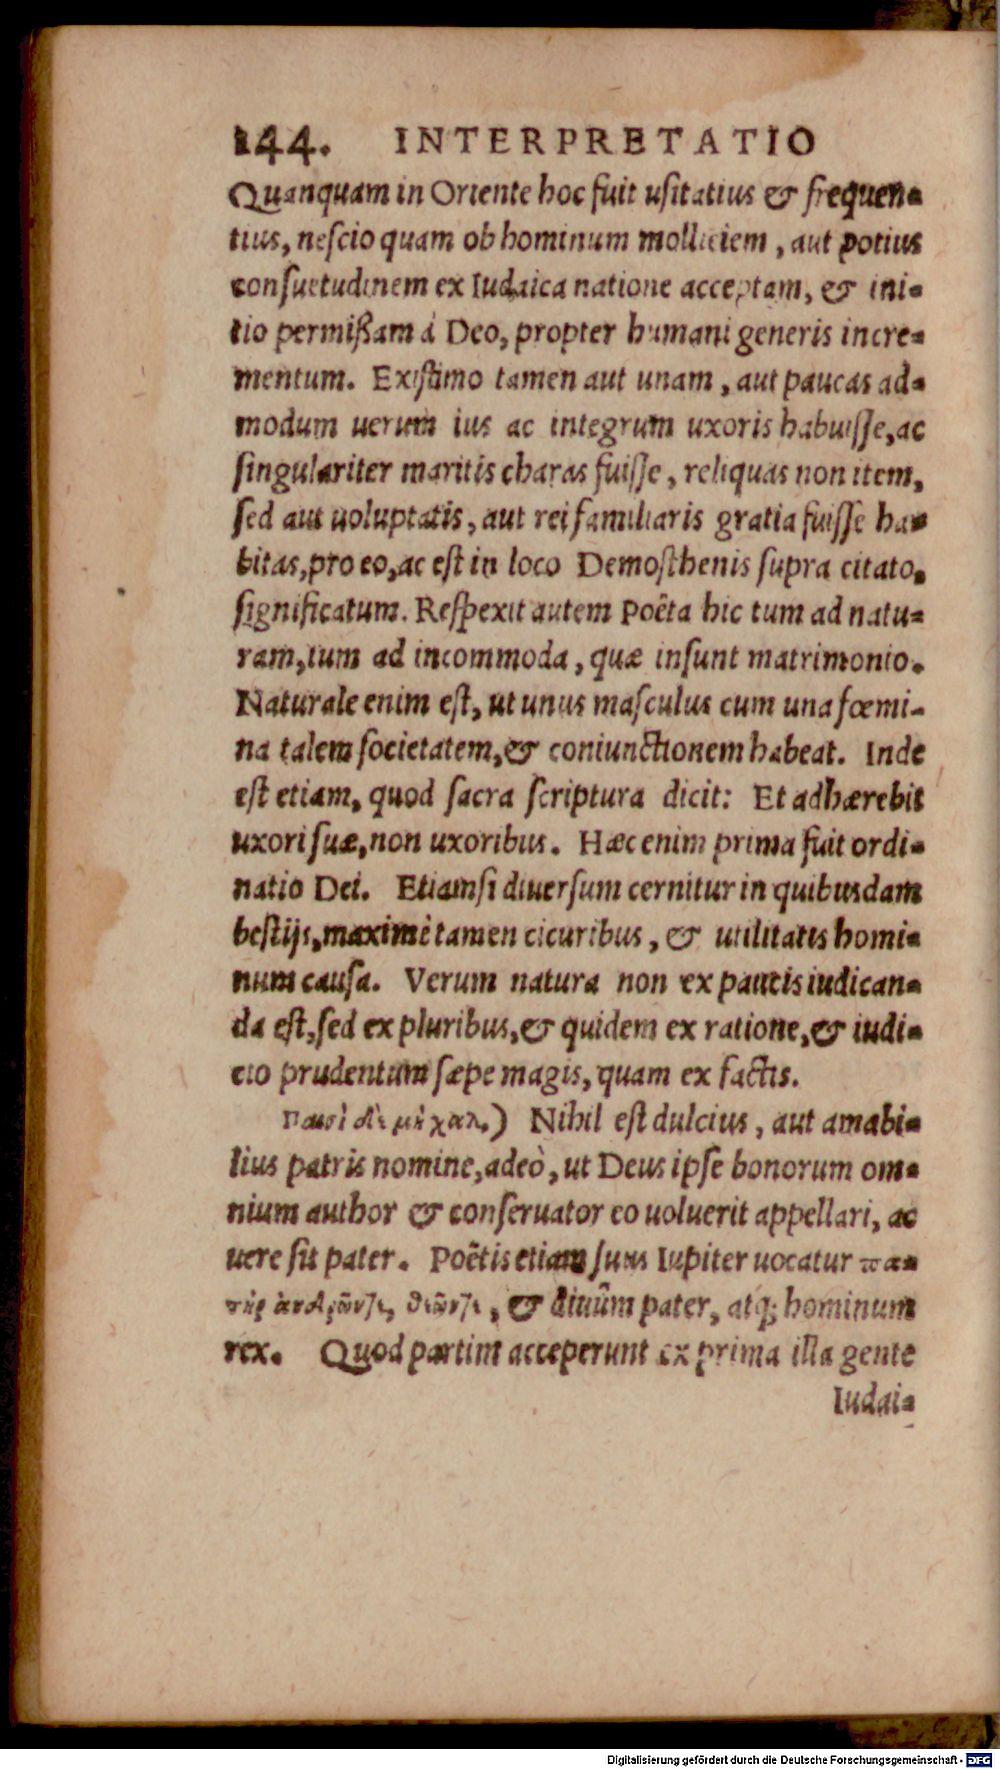 144. INTERPRETATIO
Quanquam in Oriente hoc fuit usitatius & frequen-
tius, nescio quam ob hominum molliciem, aut potius
consuetudinem ex Iudaica natione acceptam, & ini-
tio permißam á Deo, propter humani generis incre-
mentum. Existimo tamen aut unam, aut paucas ad-
modum uerum ius ac integrum uxoris habuisse, ac
singulariter maritis charas fuisse, reliquas non item,
sed aut uoluptatis, aut rei familiaris gratia fuisse ha-
bitas, pro eo, ac est in loco Demosthenis supra citato,
significatum. Respexit autem Poêta hic tum ad natu-
ram, tum ad incommoda, quæ insunt matrimonio.
Naturale enim est, ut unus masculus cum una fœmi-
na talem societatem, & coniunctionem habeat. Inde
est etiam, quod sacra scriptura dicit: Et adhærebit
uxori suæ, non uxoribus. Hæc enim prima fuit ordi-
natio Dei. Etiamsi diuersum cernitur in quibusdam
bestijs, maximè tamen cicuribus, & utilitatis homi-
num causa. Verum natura non ex paucis iudican-
da est, sed ex pluribus, & quidem ex ratione, & iudi-
cio prudentum sæpe magis, quam ex factis.
Παισὶ δὲ μὴ χαλ.) Nihil est dulcius, aut amabi-
lius patris nomine, adeò, ut Deus ipse bonorum om-
nium author & conseruator eo uoluerit appellari, ac
uere sit pater. Poêtis etiam suus Iupiter uocatur πα-
τὴρ ἀνδρῶντε, θεῶντε, & diuûm pater, atq; hominum
rex. Quod partim acceperunt ex prima illa gente
Iudai-
Digitalisierung gefördert durch die Deutsche Forschungsgemeinschaft - DFG